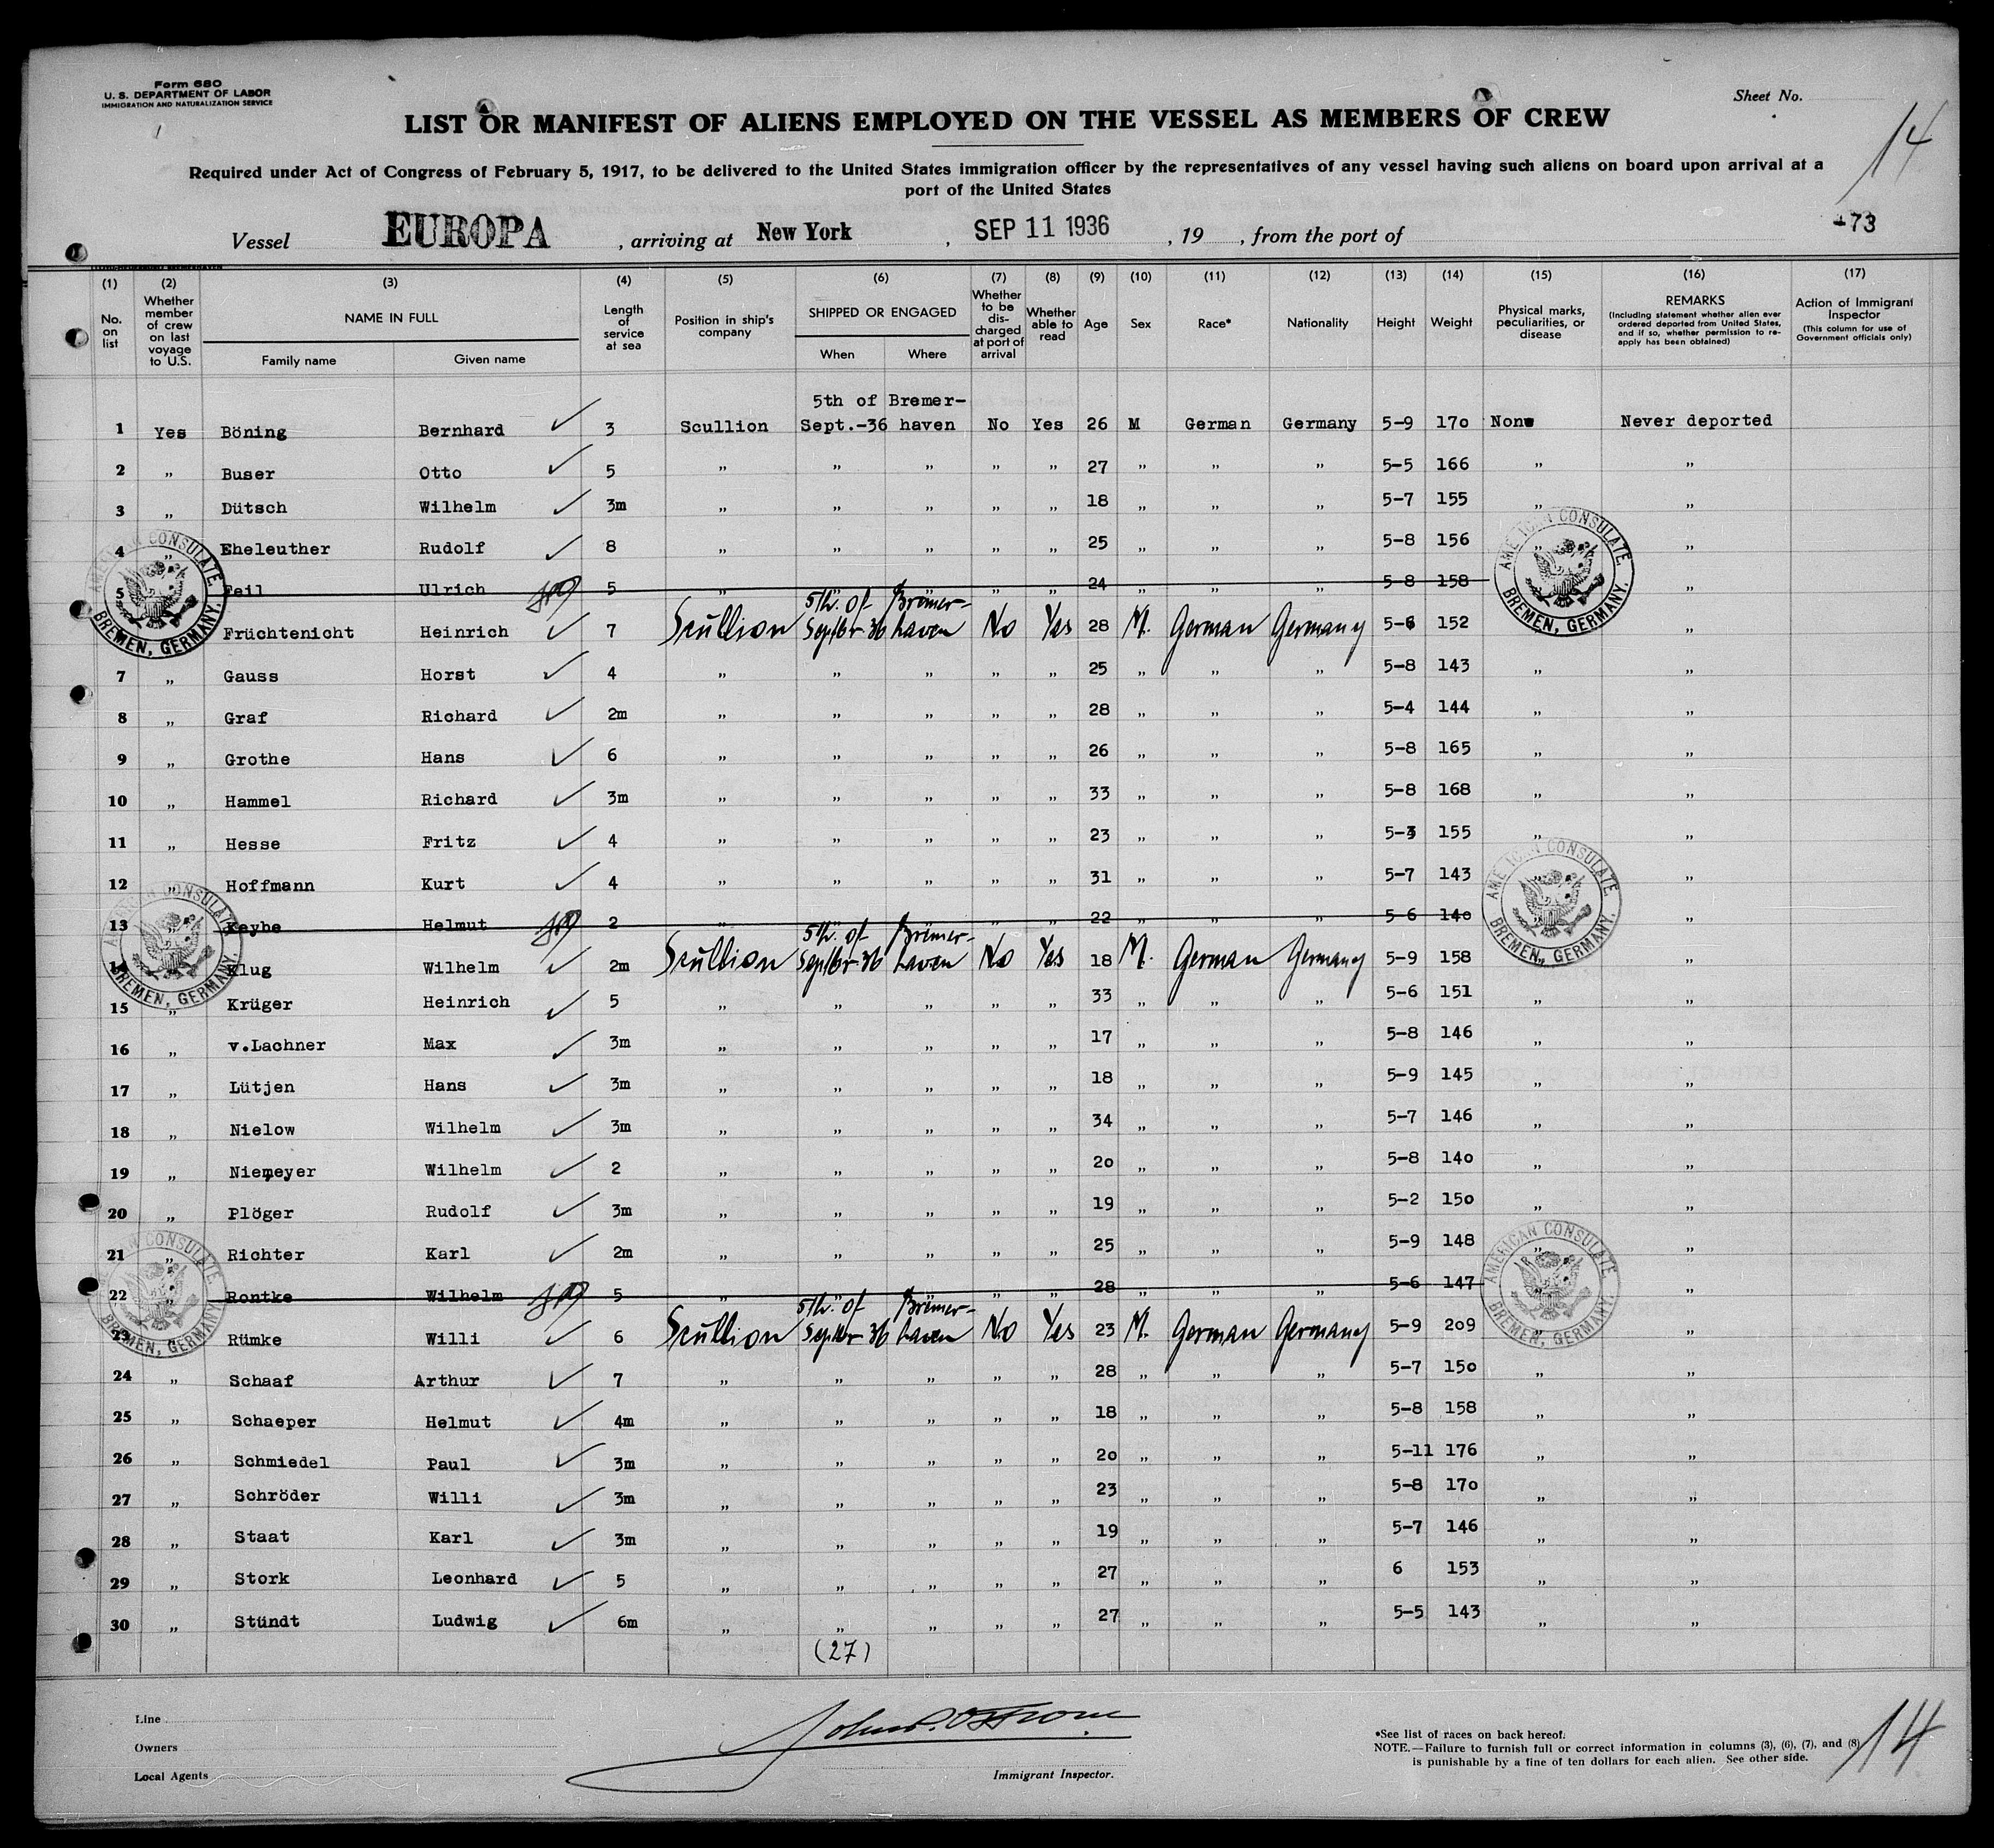 Form 680
U. S. DEPARTMENT OF LABOR
IMMIGRATION AND NATURALIZATION SERVICE
Sheet No.
14
LIST OR MANIFEST OF ALIENS EMPLOYED ON THE VESSEL AS MEMBERS OF CREW
Required under Act of Congress of February 5, 1917, to be delivered to the United States immigration officer by the representatives of any vessel having such aliens on board upon arrival at a
port of the United States
Vessel EUROPA , arriving at New York , SEP 11 1936 , 19 , from the port of -73
(1) (2) (3) (4) (5) (6) (7) (8) (9) (10) (11) (12) (13) (14) (15) (16) (17)
No. on list
Whether member of crew on last voyage to U.S.
NAME IN FULL
Family name Given name
Length of service at sea
Position in ship's company
SHIPPED OR ENGAGED
When Where
Whether to be discharged at port of arrival
Whether able to read
Age
Sex
Race*
Nationality
Height
Weight
Physical marks, peculiarities, or disease
REMARKS
(Including statement whether alien ever ordered deported from United States, and if so, whether permission to re-apply has been obtained)
Action of Immigrant Inspector
(This column for use of Government officials only)
5th of Bremer-
1 Yes Böning Bernhard ✓ 3 Scullion Sept.-36 haven No Yes 26 M German Germany 5-9 170 None Never deported
2 " Buser Otto ✓ 5 " " " " " 27 " " " 5-5 166 " "
3 " Dütsch Wilhelm ✓ 3m " " " " " 18 " " " 5-7 155 " "
4 " Eheleuther Rudolf ✓ 8 " " " " " 25 " " " 5-8 156 " "
5 Feil Ulrich 5 " " " " " 24 " " " 5-8 158 "
5th. of Bremer-
Früchtenicht Heinrich ✓ 7 Scullion Septbr 36 haven No Yes 28 M. German Germany 5-6 152 "
7 " Gauss Horst ✓ 4 " " " " " 25 " " " 5-8 143 " "
8 " Graf Richard ✓ 2m " " " " " 28 " " " 5-4 144 " "
9 " Grothe Hans ✓ 6 " " " " " 26 " " " 5-8 165 " "
10 " Hammel Richard ✓ 3m " " " " " 33 " " " 5-8 168 " "
11 " Hesse Fritz ✓ 4 " " " " " 23 " " " 5-3 155 " "
12 " Hoffmann Kurt ✓ 4 " " " " " 31 " " " 5-7 143 " "
13 " Keybe Helmut 2 " " " " " 22 " " " 5-6 140 " "
5th. of Bremer-
14 Klug Wilhelm ✓ 2m Scullion Septbr 36 haven No Yes 18 M. German Germany 5-9 158 " "
15 " Krüger Heinrich ✓ 5 " " " " " 33 " " " 5-6 151 " "
16 " v.Lachner Max ✓ 3m " " " " " 17 " " " 5-8 146 " "
17 " Lütjen Hans ✓ 3m " " " " " 18 " " " 5-9 145 " "
18 " Nielow Wilhelm ✓ 3m " " " " " 34 " " " 5-7 146 " "
19 " Niemeyer Wilhelm ✓ 2 " " " " " 20 " " " 5-8 140 " "
20 " Plöger Rudolf ✓ 3m " " " " " 19 " " " 5-2 150 " "
21 " Richter Karl ✓ 2m " " " " " 25 " " " 5-9 148 " "
22 " Rontke Wilhelm 5 " " " " " 28 " " " 5-6 147 " "
5th. of Bremer-
23 Rümke Willi ✓ 6 Scullion Septbr 36 haven No Yes 23 M. German Germany 5-9 209 " "
24 " Schaaf Arthur ✓ 7 " " " " " 28 " " " 5-7 150 " "
25 " Schaeper Helmut ✓ 4m " " " " " 18 " " " 5-8 158 " "
26 " Schmiedel Paul ✓ 3m " " " " " 20 " " " 5-11 176 " "
27 " Schröder Willi ✓ 3m " " " " " 23 " " " 5-8 170 " "
28 " Staat Karl ✓ 3m " " " " " 19 " " " 5-7 146 " "
29 " Stork Leonhard ✓ 5 " " " " " 27 " " " 6 153 " "
30 " Stündt Ludwig ✓ 6m " " " " " 27 " " " 5-5 143 " "
(27)
AMERICAN CONSULATE.
BREMEN, GERMANY.
AMERICAN CONSULATE.
BREMEN, GERMANY.
AMERICAN CONSULATE.
BREMEN, GERMANY.
AMERICAN CONSULATE.
BREMEN, GERMANY.
AMERICAN CONSULATE.
BREMEN, GERMANY.
AMERICAN CONSULATE.
BREMEN, GERMANY.
Line
Owners
Local Agents
Immigrant Inspector.
*See list of races on back hereof.
NOTE.—Failure to furnish full or correct information in columns (3), (6), (7), and (8)
is punishable by a fine of ten dollars for each alien. See other side.
14